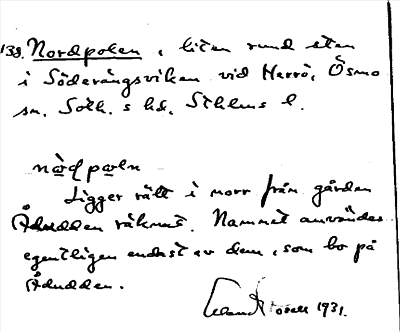 138. Nordpolen, liten rund sten
i Söderängsviken vid Herrö, Ösmo
sn. Soth. s hd. Sthlms l.
nɷ̀ɖpωln
Ligger rätt i norr från gården
Ådudden räknat. Namnet användes
egentligen endast av dem, som bo på
Ådudden.
1931.